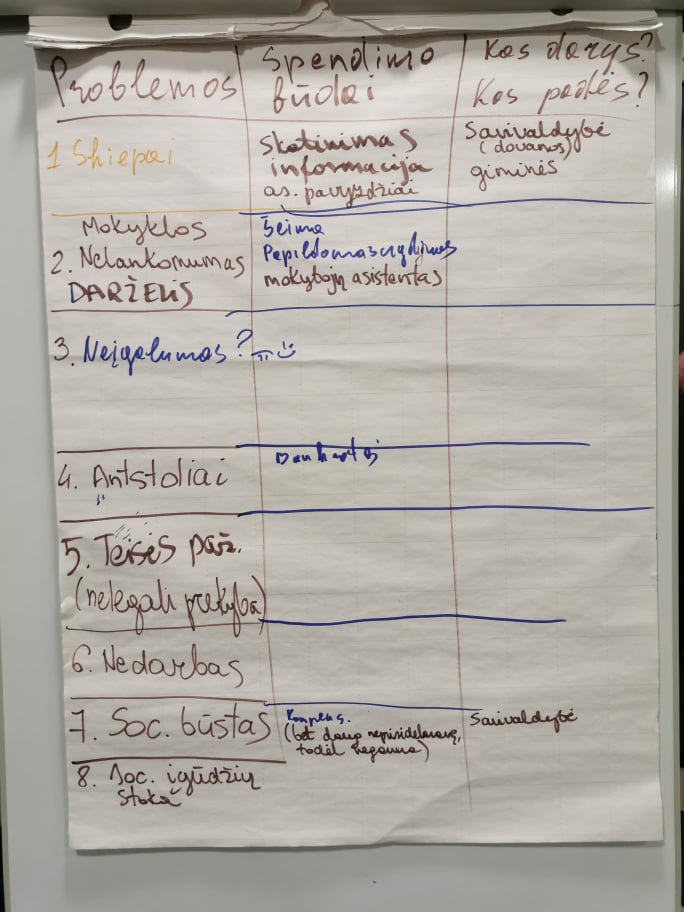 Problemos
Spendimo
būdai
Kas darys?
Kas padės?
1 Skiepai
Skatinimas
informacija
as. pavyzdžiai
Savivaldybė
(dovanos)
giminės
Mokyklos
2. Nelankomumas
DARŽELIS
Šeima
Papildomas ugdymas
mokytojų asistentas
3. Neįgalumas?
4. Antstoliai
Bankrotas
5. Teisės paž.
(nelegali prekyba)
6. Nedarbas
7. Soc. būstas
Kompens.
(bet daug
todėl negauna)
Savivaldybė
8. Soc. įgūdžių
stoka